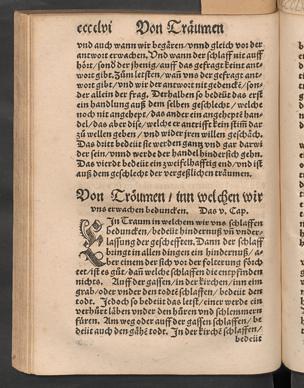 cccclvi Von Träumen
vnd auch wann wir begären/vnnd gleich vor der
antwort erwachen. Vnd wann der schlaff nit auff
hört/sond der jhenig/auff das gefragt keint ant-
wort gibt. Zům letsten/wañ vns der gefragt ant-
wort gibt/vnd wir der antwort nit gedencke/son-
der allein der frag. Derhalben so bedeüt das erst
ein handlung auß dem selben geschlecht/welche
noch nit angehept/das ander ein angehept hand-
el/das aber dise/welche er antrifft kein stim̃ dar
zů wellen geben/vnd wider jren willen geschäch.
Das dritt bedeüt sie werden gantz vnd gar darwi
der sein/vnnd werde der handel hindersich gehn.
Das vierde bedeüt ein zweifelhafftig end/vnd ist
auß dem geschlecht der vergeßlichen träumen.
Von Tröumen/inn welchen wir
vns erwachen beduncken. Das v. Cap.
Ein Traum in welchem wir vns schlaffen
beduncken/bedeüt hindernuß vñ vnder-
lassung der gescheften. Dann der schlaff
bringt in allen dingen ein hindernuß/a-
ber einem der sich vor der folterung förch
tet/ist es gůt/dañ welche schlaffen die entpfinden
nichts. Auff der gassen/in der kirchen/inn eim
grab/oder vnder den todtē schlaffen/bedeüt den
todt. Jedoch so bedeüt das letst/einer werde ein
verhůrt läben vnder den hůren vnd schlemmern
füren. Am weg oder auff der gassen schlaffen/be
deüt auch den gähē todt. In der kirchē schlaffen/
bedeüt